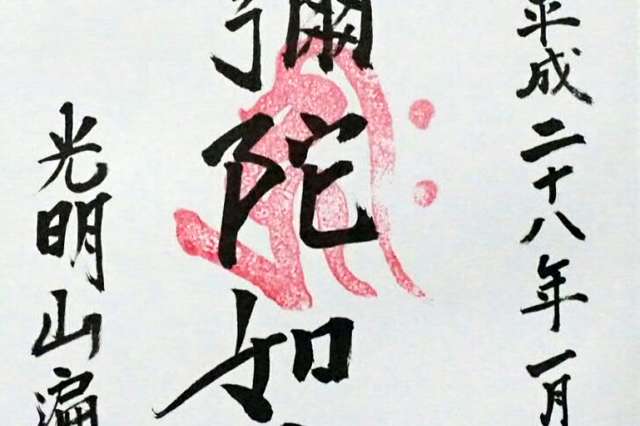 平成二十八年一月
彌陀如
光明山遍